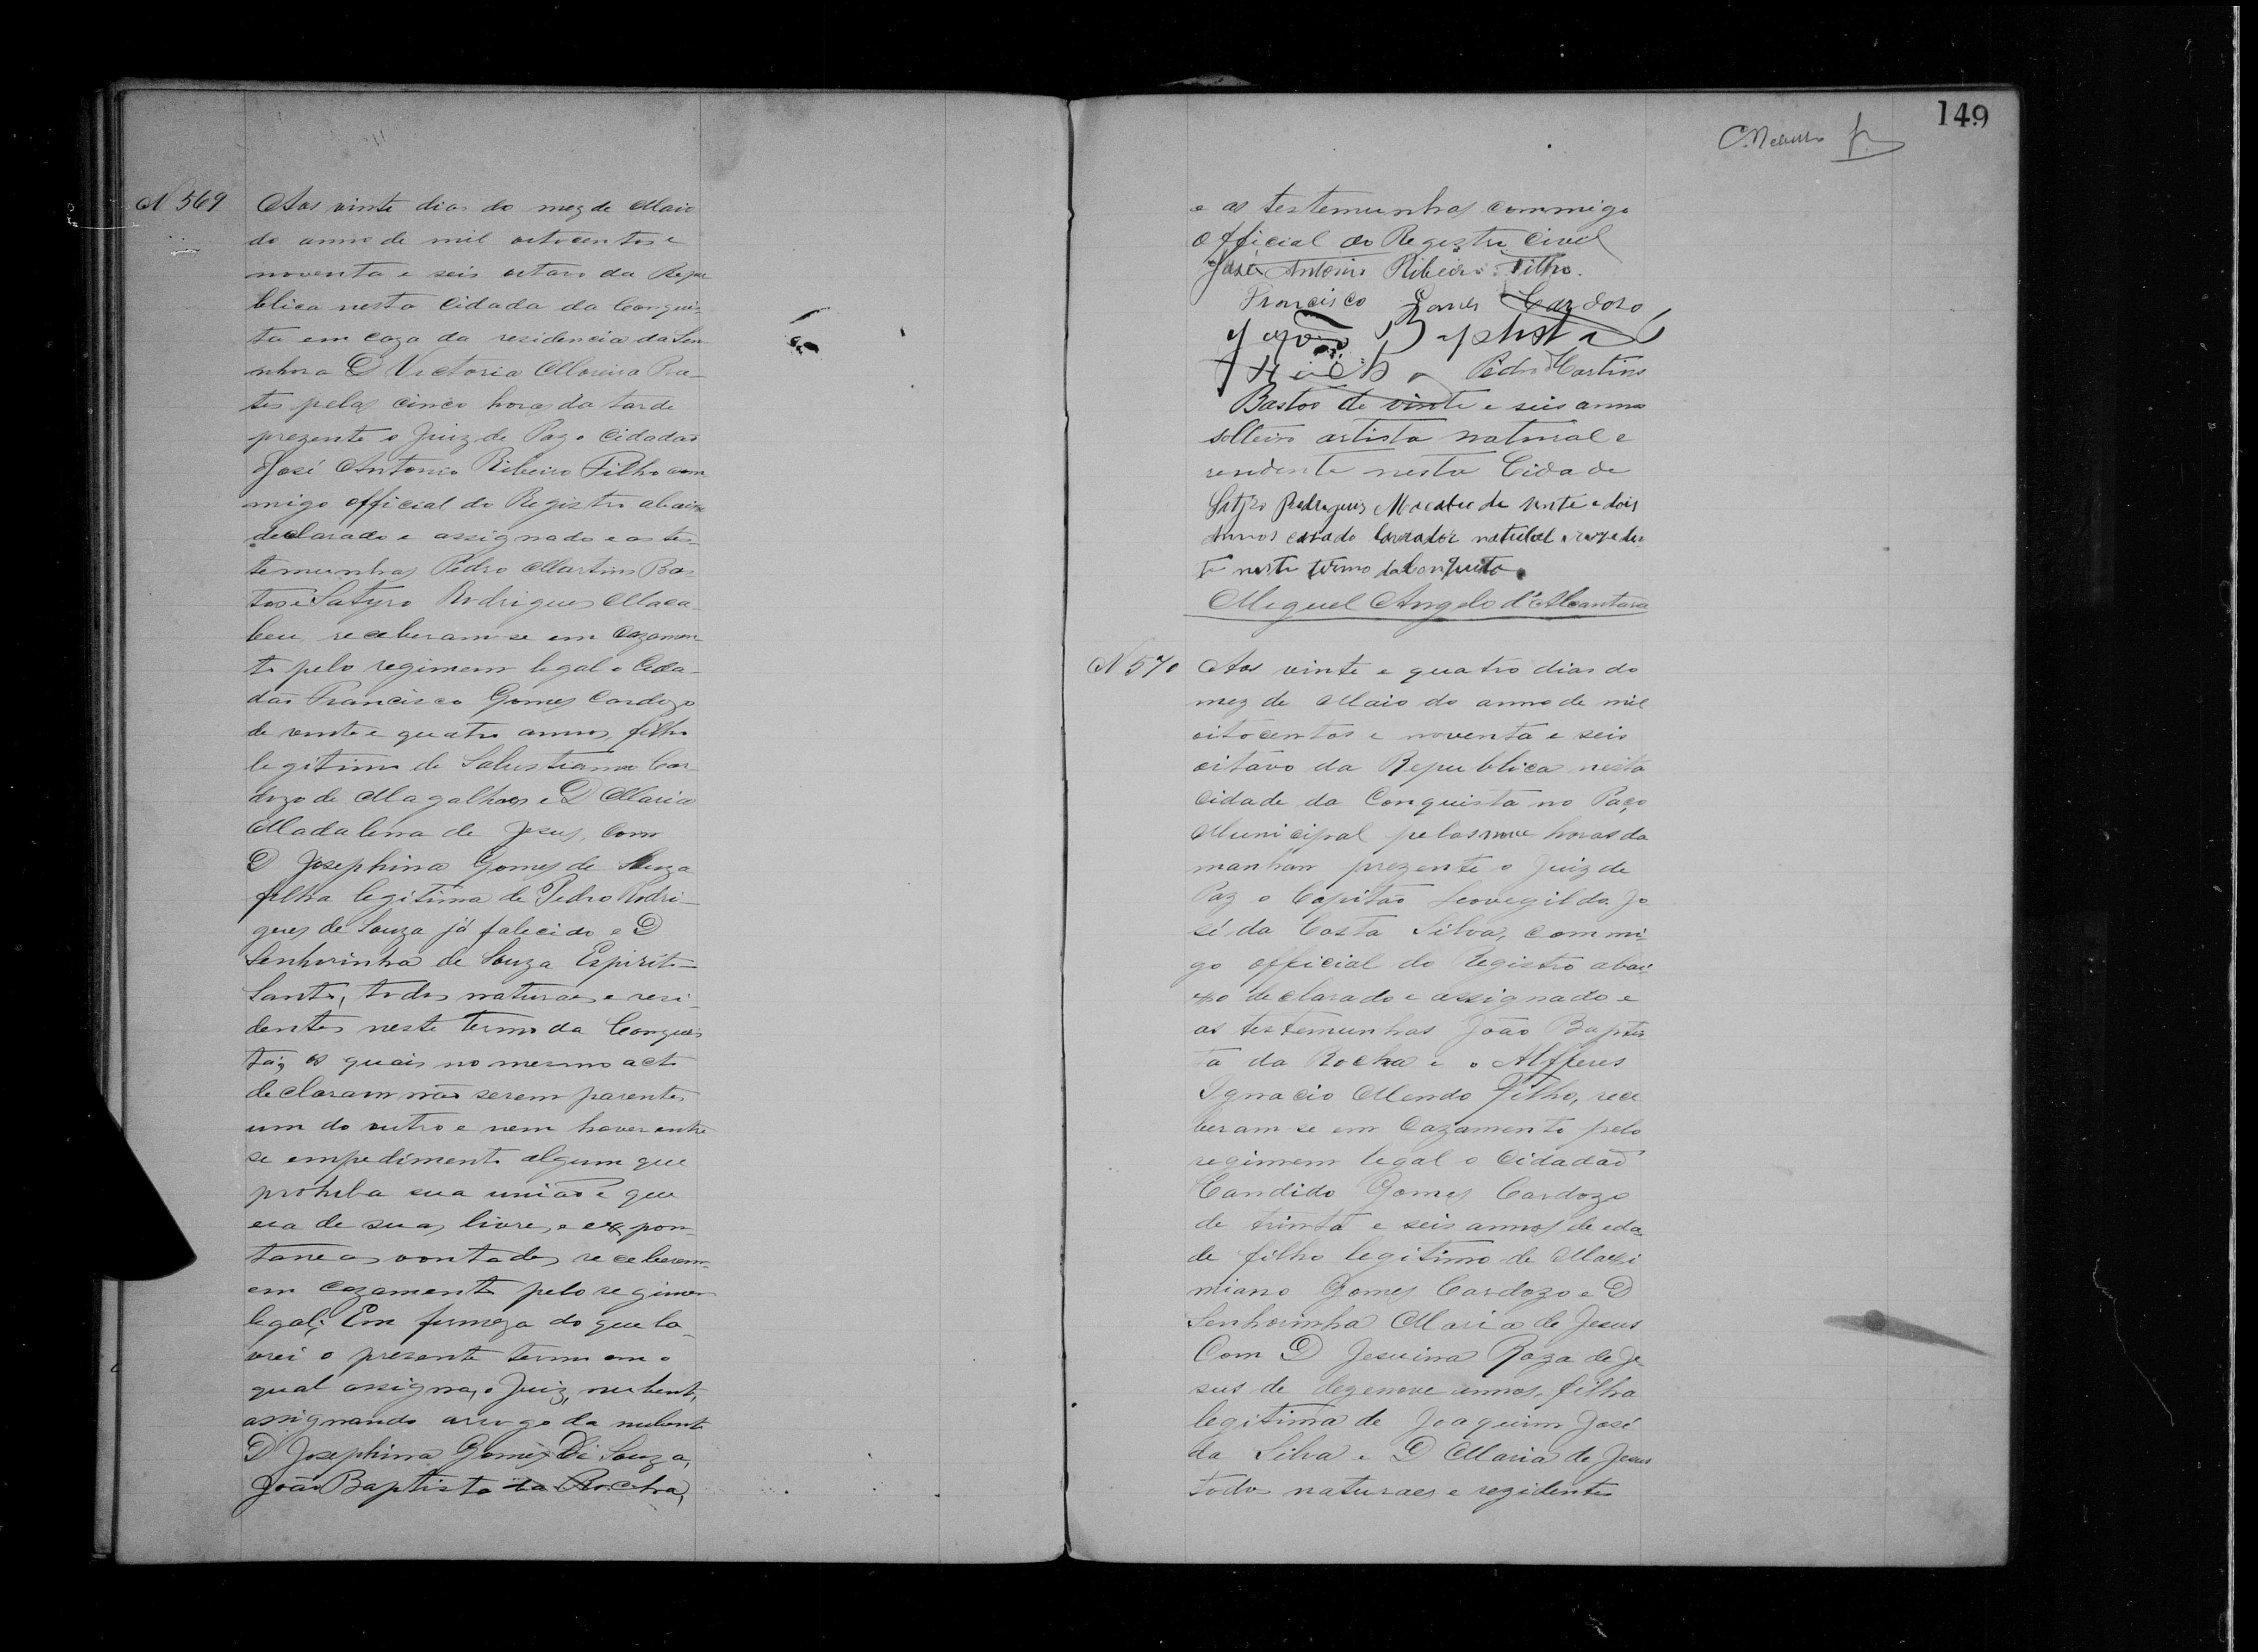 N 569
Aos vinte dias do mez de Maio
do anno de mil oitocentos e
noventa e seis oitavo da Repu
blica nesta Cidada da Conquis-
ta em caza da residencia da Sen
nhora D Victoria Moreira Pra-
tes pelas cinco horas da tarde
prezente o Juiz de Paz o Cidadão
José Antonio Ribeiro Filho com
migo official do Registro abaixo
declarado e assignado e as tes-
temunhas Pedro Martins Bas-
tos e Satyro Rodrigues Maca-
beu receberam-se em Cazamen
to pelo regimem legal o Cida-
dão Francisco Gomes Cardozo
de vinte e quatro annos, filho
legitimo de Salustiano Car
dozo de Magalhaes e D Maria
Madalena de Jesus, Com
D Josephina Gomes de Souza
filha legitima de Pedro Rodri-
gues de Souza já falecido e D
Senhorinha de Souza Espirito
Santo, todos naturaes e resi-
dentes neste termo da Conquis
ta; os quais no mesmo acto
declaram não serem parentes
um do outro e nem haver entre
se empedimento algum que
prohiba sua união e que
era de suas livres e expon-
taneas vontades receberem-
em Cazamento pelo regimem
legal; Em firmeza do que la-
vrei o presente termo em o
qual assigna, o Juiz, nubente,
assignando arogo da nubente
D Josephina Gomes Di Souza,
João Baptista da Rocha,
149
e as testemunhas commigo
Official do Registro Civel
José Antonio Ribeiro Filho.
Francisco Gomes Cardoso
Baptista
Pedro Martins
Bastos de vinte e seis annos
solteiro artista natural e
rendente nesta Cidade
Satyro Rodrigues Macabeu de vinte e dois
annos casado lavrador natural e rezeden
te neste termo da Conquista
Miguel Angelo d'Alcantara
N 570
Aos vinte e quatro dias do
mez de Maio do anno de mil
oitocentos e noventa e seis
oitavo da Republica nesta
Cidade da Conquista no Paço
Municipal pelas nove horas da
manham prezente o Juiz de
Paz o Capitão Leovegildo Jo
sé da Costa Silva, commi-
go official do Registro abai
xo declarado e assignado e
as testemunhas João Baptis
ta da Rocha e o Alfferes
Ignacio Mendo Filho, rece
beram-se em Cazamento pelo
regimem legal o Cidadão
Candido Gomes Cardozo
de trinta e seis annos de eda-
de filho legitimo de Maxi
miano Gomes Cardozo e D
Senhorinha Maria de Jesus
Com D Jesuina Roza de Je
sus de dezenove annos, filha
legitima de Joaquim José
da Silva e D Maria de Jesus
todos naturaes e rezidentes